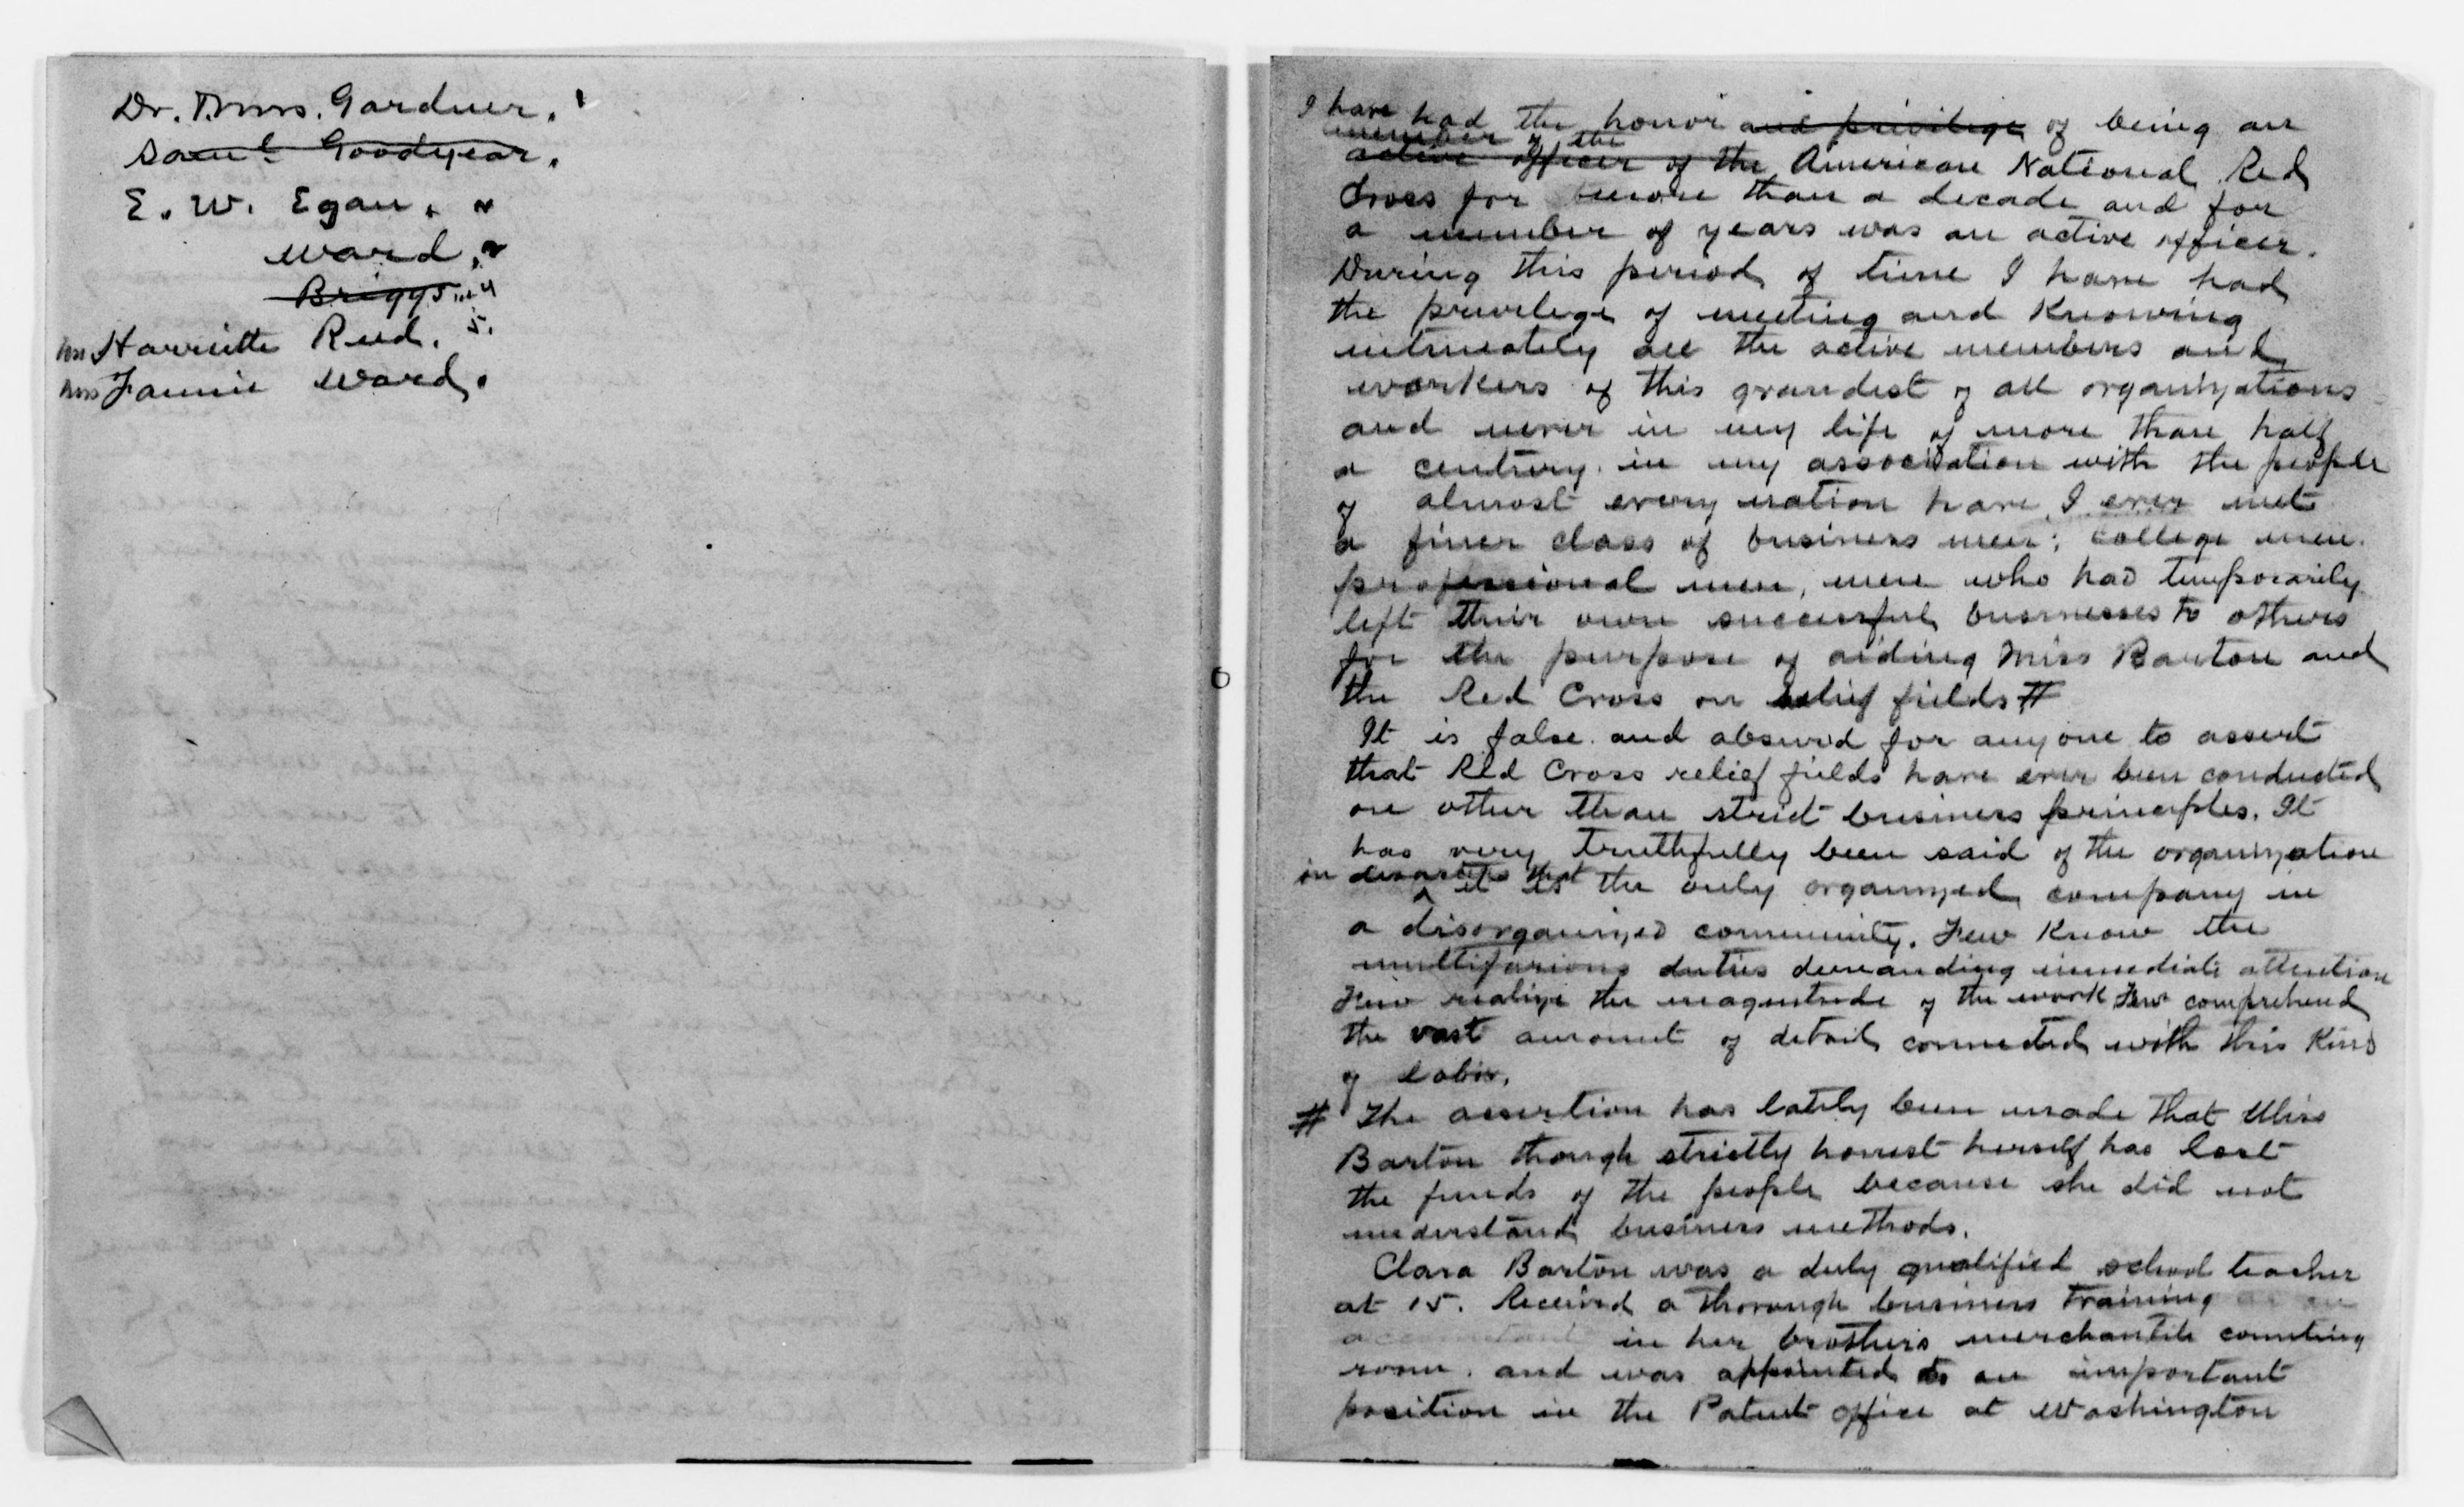 Dr. & Mrs. Gardner.
Saml Goodyear.
E. W. Egan.
Ward.
Briggs. 4
Mrs Harriette Reed. 5.
Mrs Fannie Ward.
I have had the honor and privilege of being an
member of the
active officer of the American National Red
Cross for more than a decade and for
a number of years was an active officer.
During this period of time I have had
the privilege of meeting and Knowing
intimately all the active members and
workers of this grandest of all organizations
and never in my life of more than half
a century in my association with the people
of almost every nation have I ever met
a finer class of business men; college men.
professional men, men who had temporarily
left their own successful businesses to others
for the purpose of aiding Miss Barton and
the Red Cross on relief fields #
It is false and absurd for anyone to assert
that Red Cross relief fields have ever been conducted
on other than strict business principles. It
has very truthfully been said of the organization
in disasters that
it is the only organized company in
a disorganized community. Few Know the
multifarious duties demanding immediate attention
Few realize the magnitude of the work Few comprehend
the vast amount of detail connected with this Kind
of labor.
# The assertion has lately been made that Miss
Barton though strictly honest herself has lost
the funds of the people because she did not
understand business methods.
Clara Barton was a duly qualified school teacher
at 15. Received a thorough business training as an
accountant in her brother's merchantile counting
room. and was appointed to an important
position in the Patent office at Washington